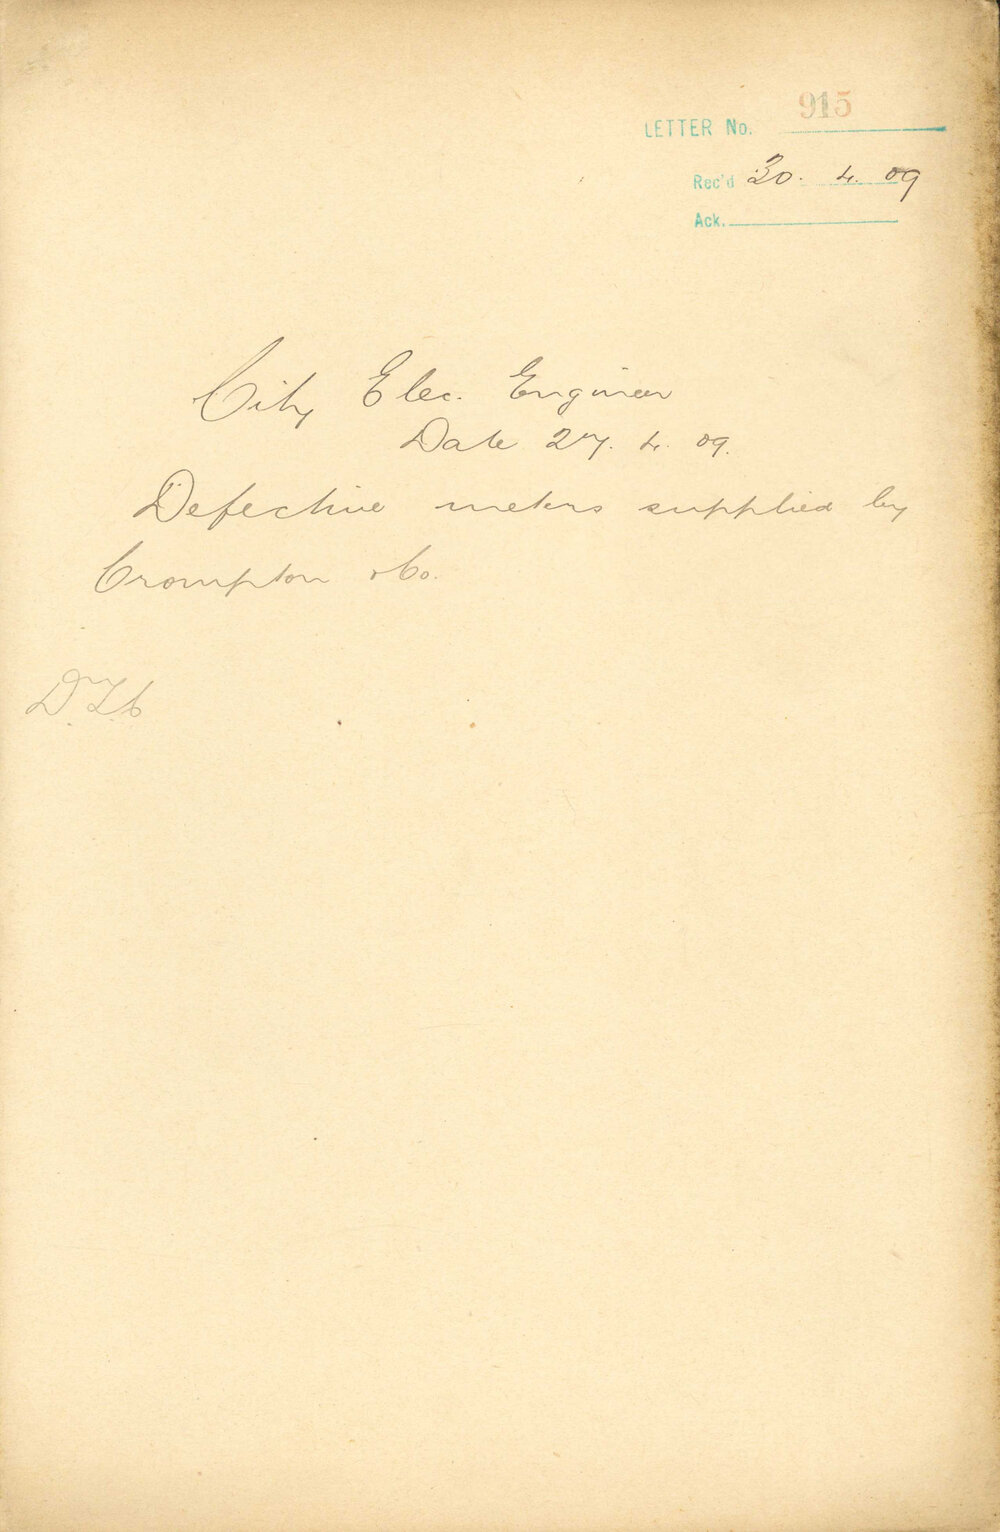 LETTER No. 915
Rec'd 30. 4. 09
Ack.
City Elec. Engineer
Date 27. 4. 09.
Defective meters supplied by
Crompton & Co.